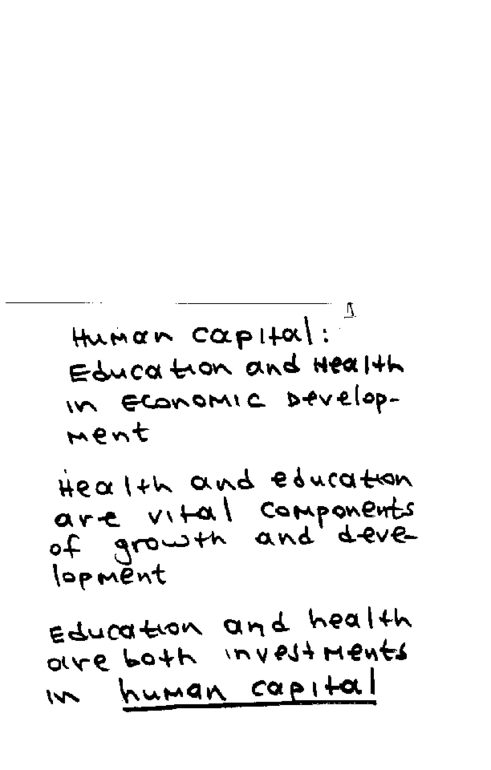 Human capital:
Education and Health
in Economic Develop-
ment
Health and education
are vital components
of growth and deve-
lopment
Education and health
are both investments
in human capital